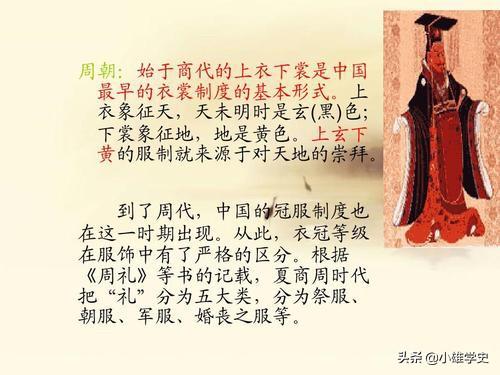 周朝：始于商代的上衣下裳是中国
最早的衣裳制度的基本形式。上
衣象征天，天未明时是玄(黑)色；
下裳象征地，地是黄色。上玄下
黄的服制就来源于对天地的崇拜。
到了周代，中国的冠服制度也
在这一时期出现。从此，衣冠等级
在服饰中有了严格的区分。根据
《周礼》等书的记载，夏商周时代
把“礼”分为五大类，分为祭服、
朝服、军服、婚丧之服等。
头条@小雄学史